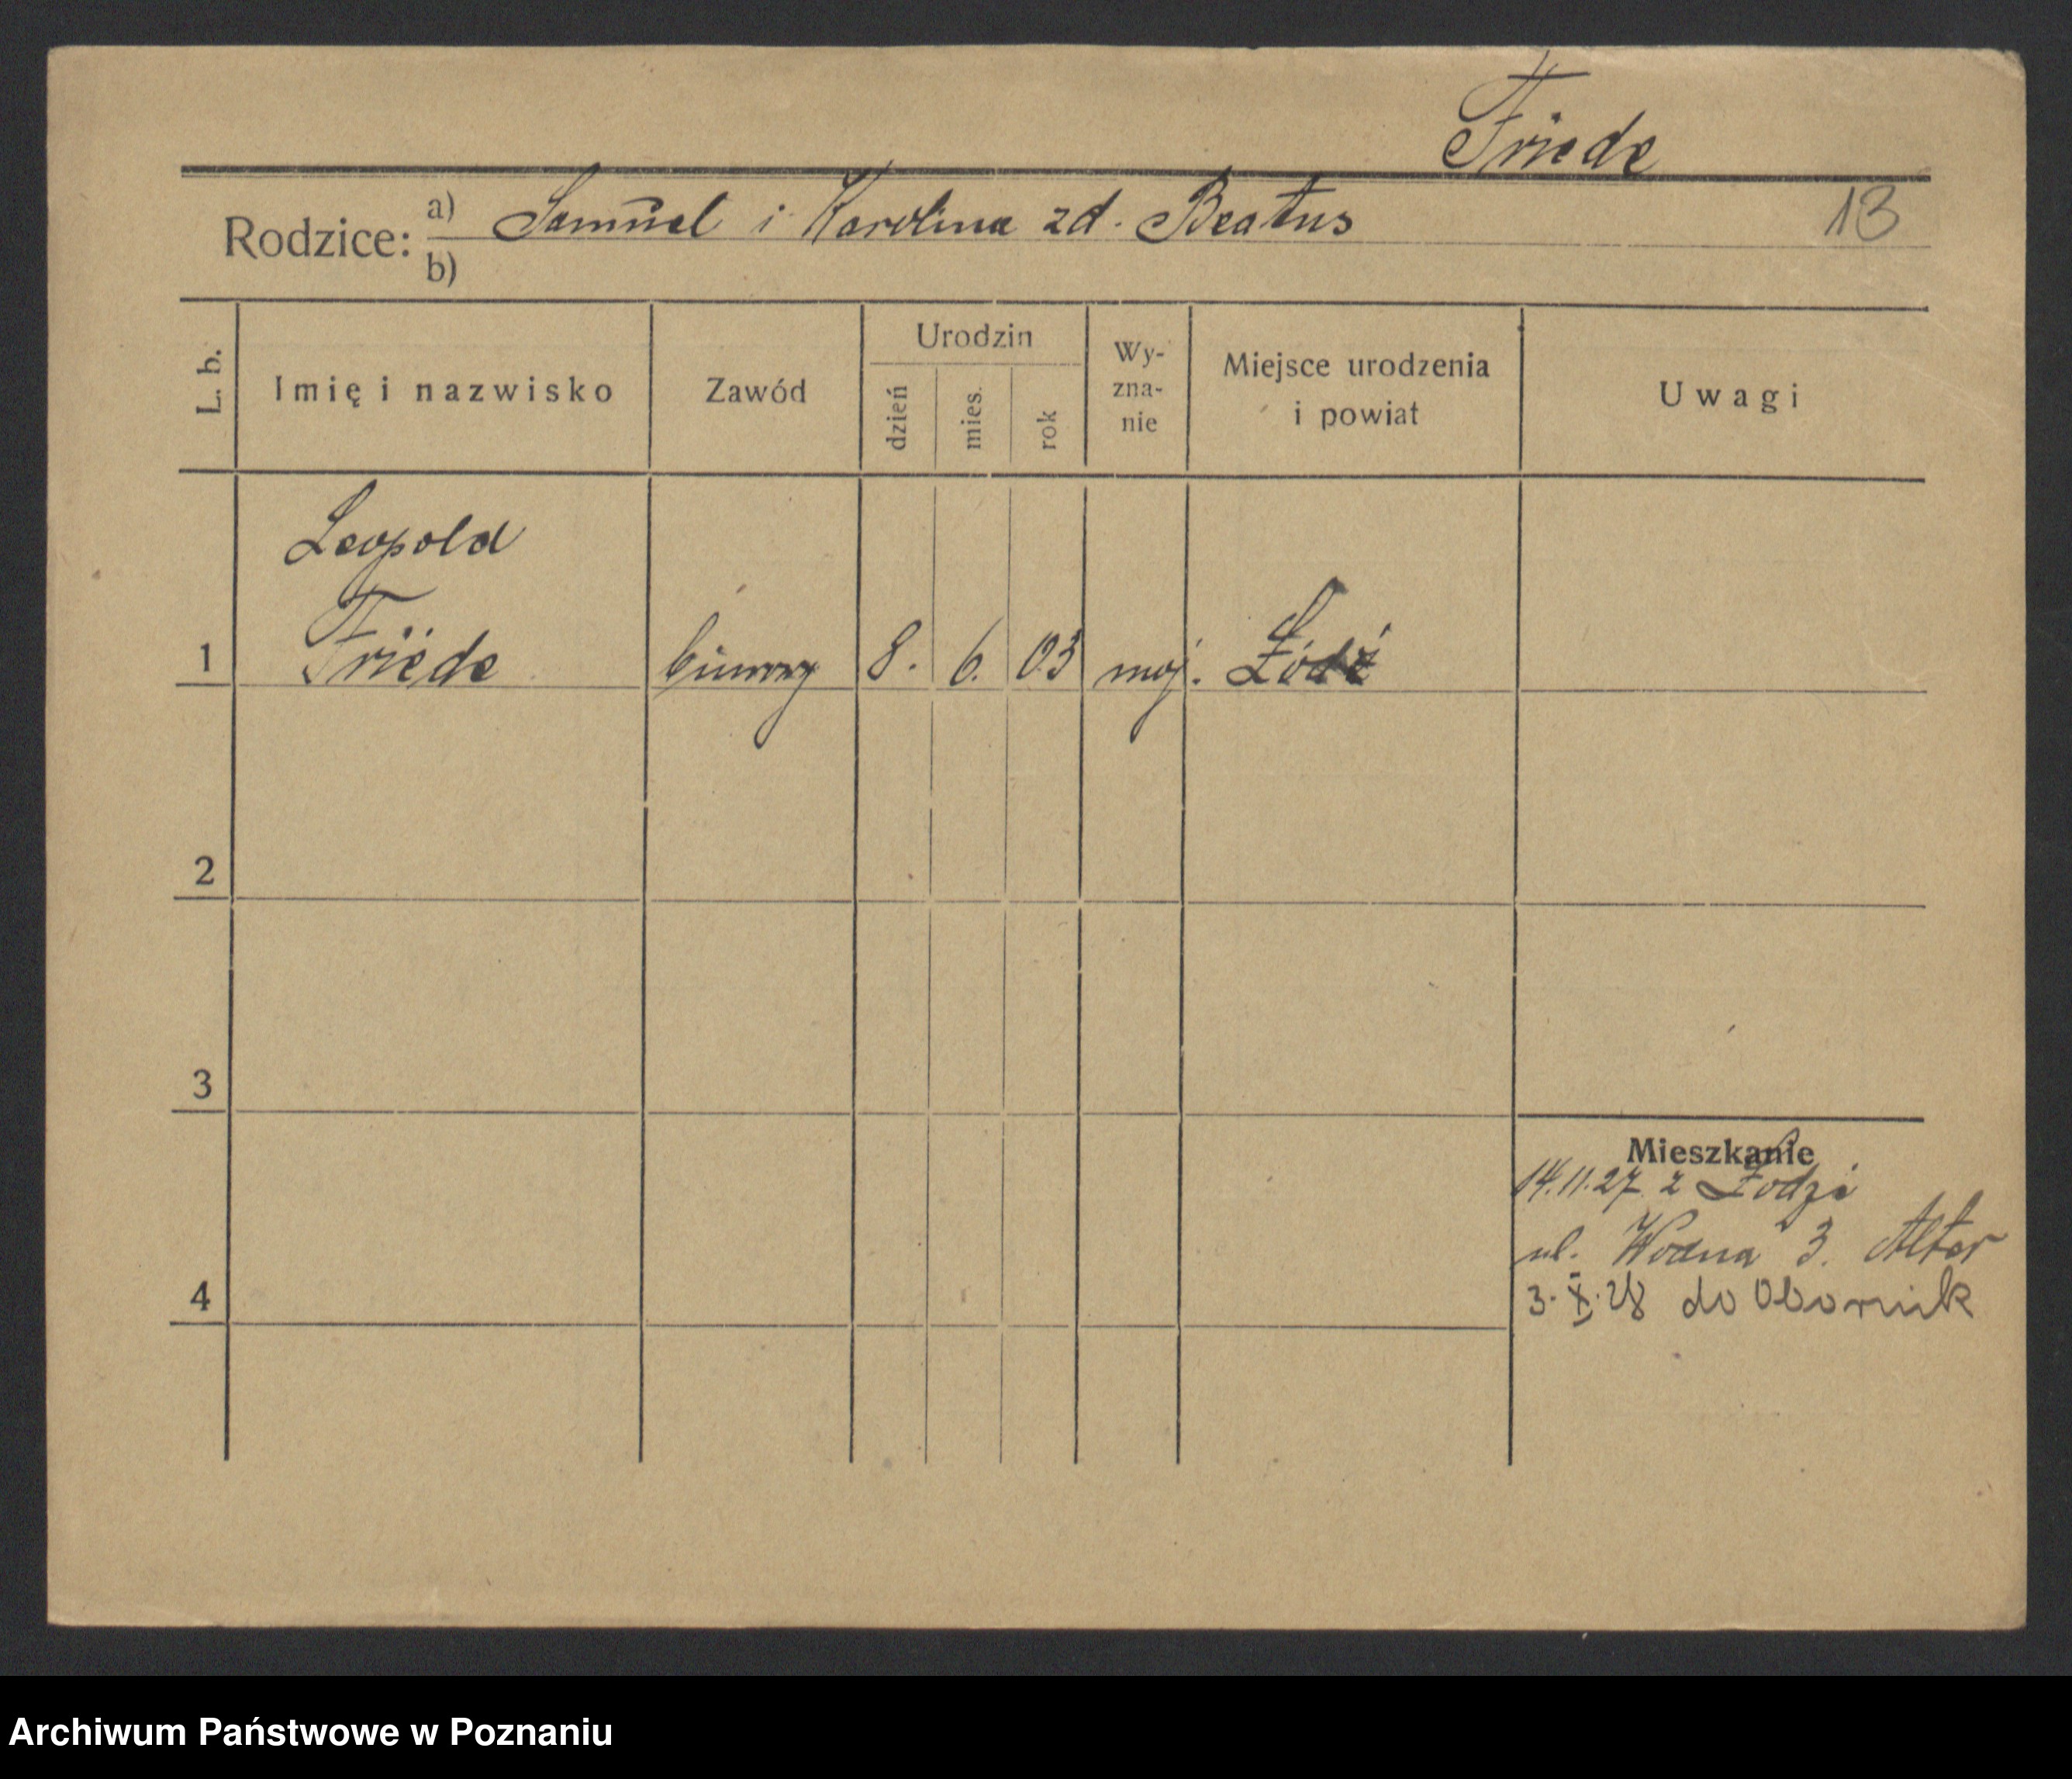 Friede
Rodzice: a) Samuel i Karolina zd. Beatus
13
b)
L. b.
Imię i nazwisko
Zawód
Urodzin
dzień
mies.
rok
Wy-
zna-
nie
Miejsce urodzenia
i powiat
Uwagi
Leopold
1 Friede biurowy 8. 6. 03 moj. Łódź
2
3
4
Mieszkanie
14.11.27 z Łodzi
ul. Wodna 3. Alter
3.X.28 do Obornik
Archiwum Państwowe w Poznaniu